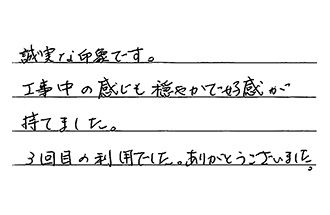 誠実な印象です。
工事中の感じも穏やかで好感が
持てました。
3回目の利用でした。ありがとうございました。